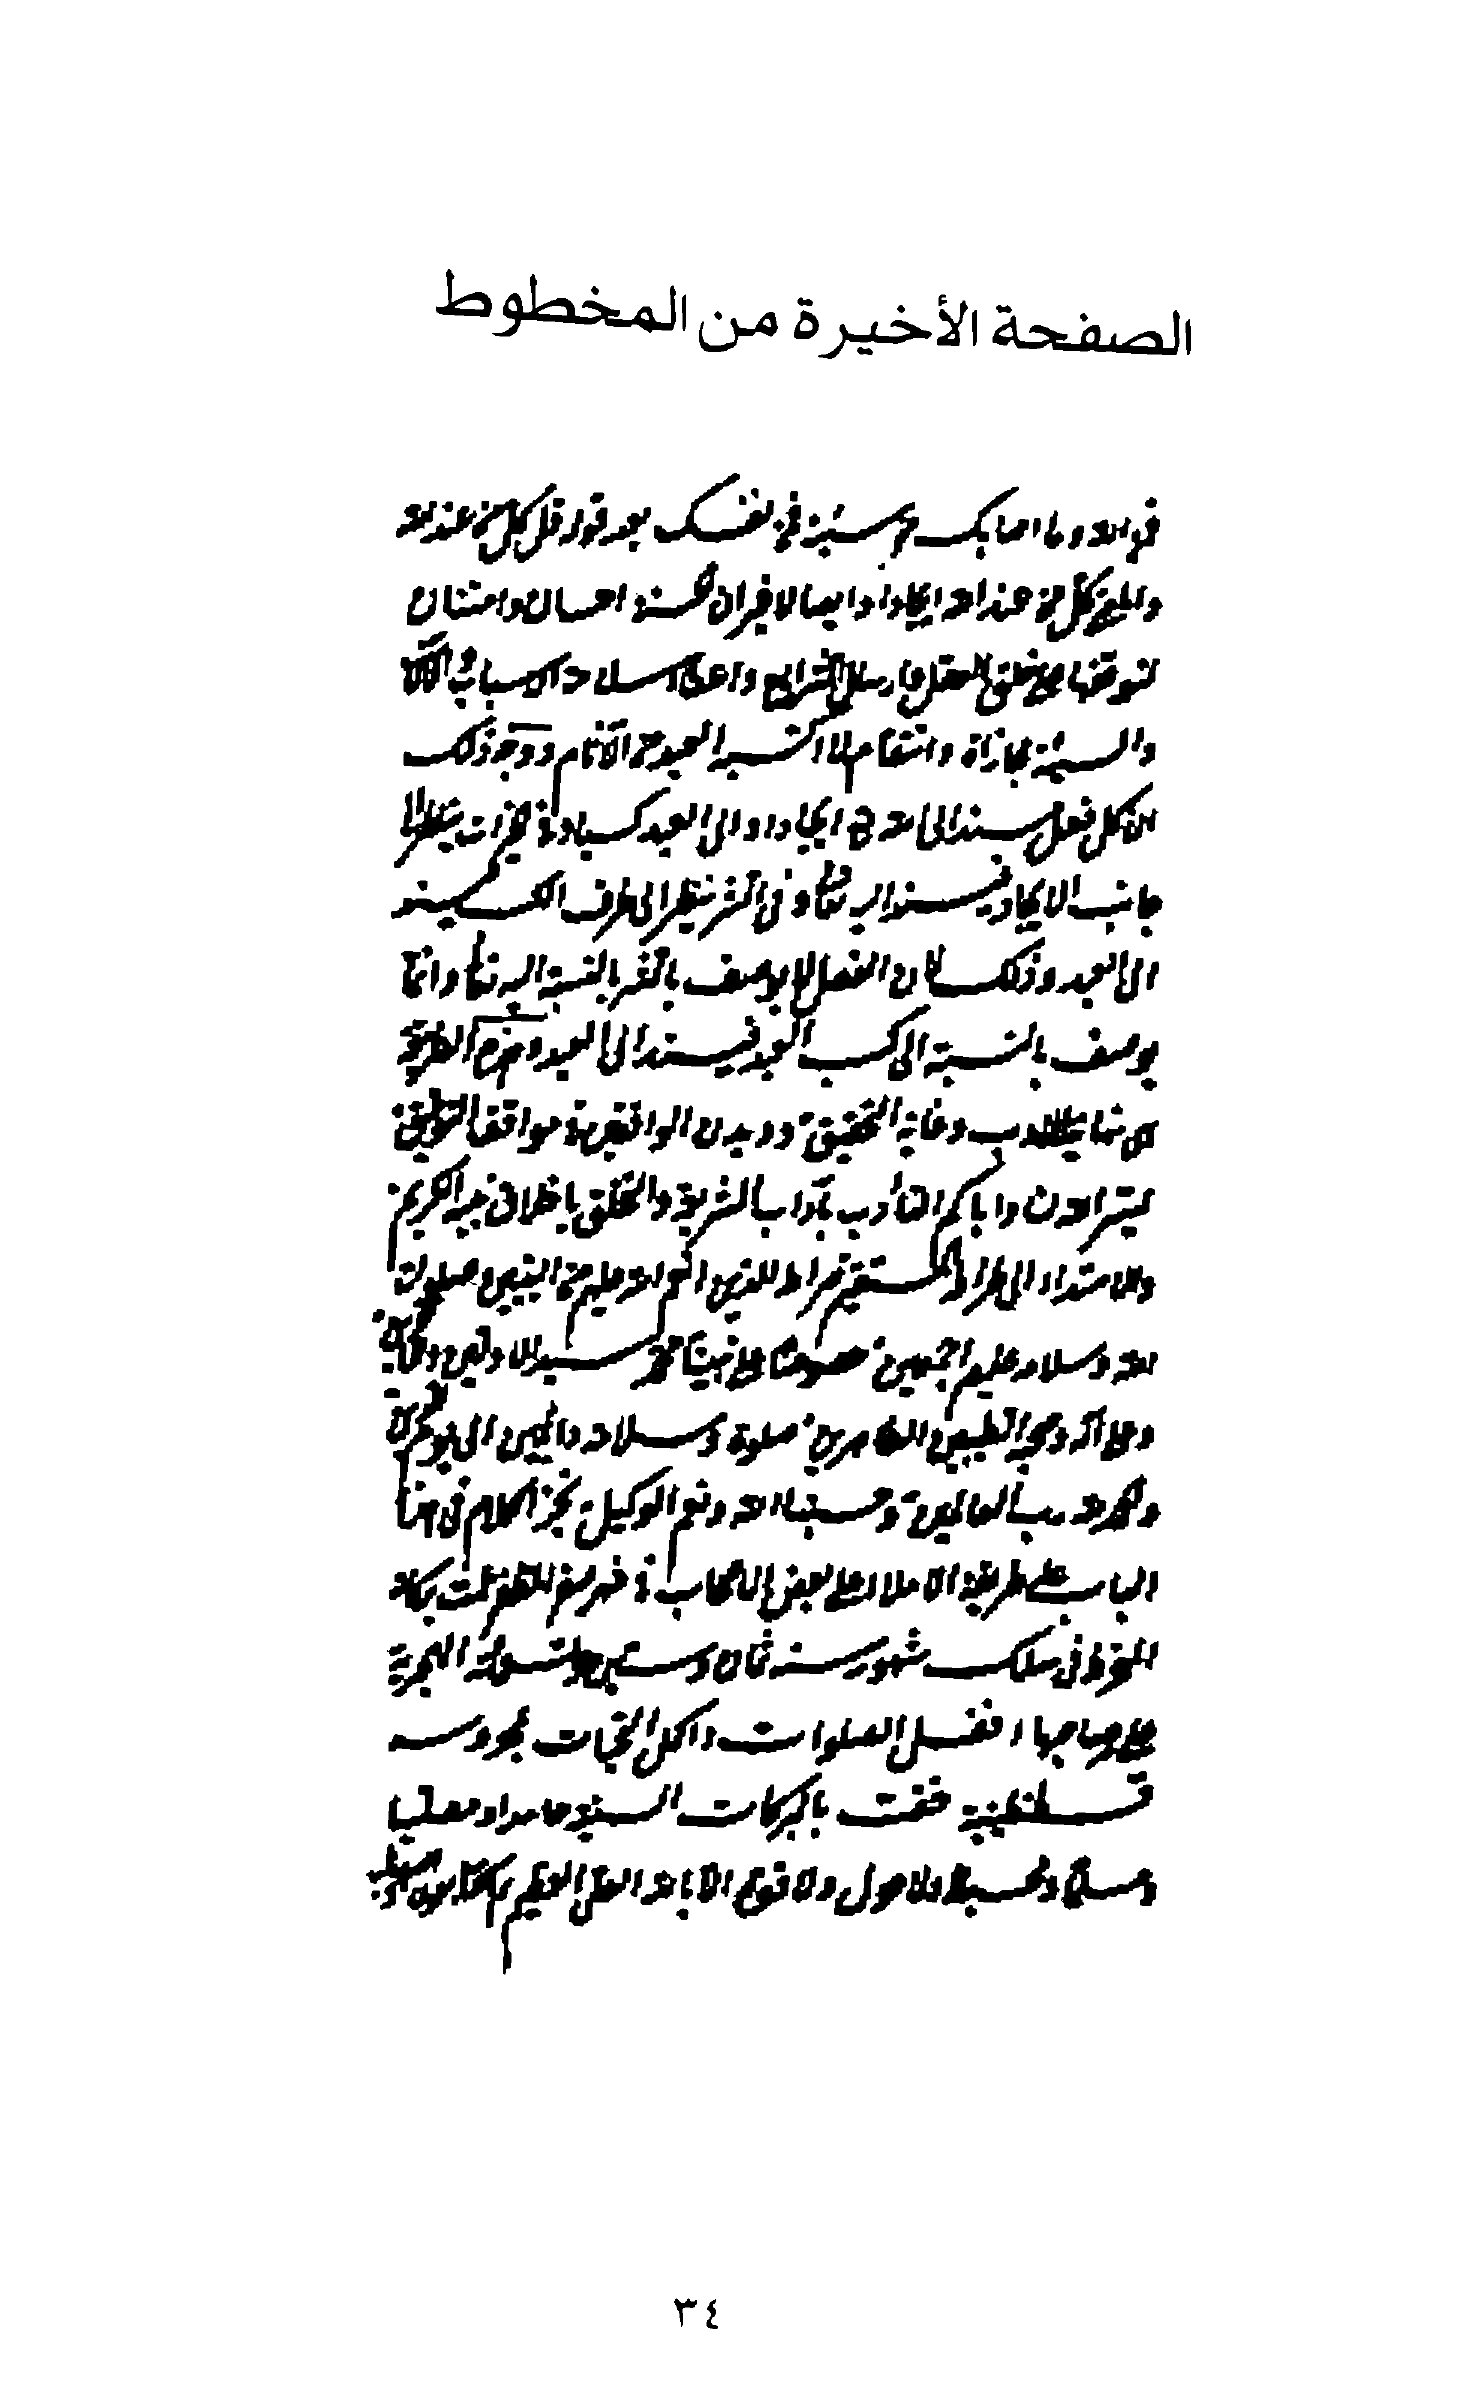 الصفحة الأخيرة من المخطوط
فمن الله وما اصابك من سيئة فمن نفسك بعد قوله قل كل من عند الله
والمعنى كل من عند الله ايجادا وايصالا غير ان الحسنة احسان وامتنان
لتوقفها على خلق العقل وارسال الشرايع واعطاء سلامة الاسباب والآلات
والسيئة مجازاة وانتقام لما اكتسبه العبد من الآثام ووجه ذلك
ان كل فعل مسند الى الله ايجادا والى العبد كسبا وفي الخيرات ينظر الى
جانب الايجاد فيسند اليه تعالى وفي الشر ينظر الى طرف الكسب فيسند
الى العبد وذلك لان الفعل لا يوصف بالشر بالنسبة اليه تعالى وانما
يوصف بالنسبة الى كسب العبد فيسند الى العبد الطريقة
وغاية التحقيق وديدن الواقفين في مواقف التوفيق
يسر الله لنا واياكم التأدب بآداب الشريعة والتخلق باخلاق نبيه الكريم
والاهتداء الى الصراط المستقيم صراط الذين انعم الله عليهم من النبيين صلوات
الله وسلامه عليهم اجمعين خصوصا على نبينا محمد سيد الاولين والآخرين
وعلى آله وصحبه الطيبين الطاهرين صلوة وسلاما دائمين الى يوم الدين
والحمد لله رب العالمين وحسبنا الله ونعم الوكيل نجز الكلام في هذا
الباب على طريقة الاملاء على بعض الاصحاب في شهر صفر المظفر
في سلك شهور سنة ثمان وستين وتسعمائة الهجرية
على صاحبها افضل الصلوات واكمل التحيات بمحروسة
قسطنطينية حفت بالبركات السنية حامدا ومصليا
ومسلما ومحسبلا ولا حول ولا قوة الا بالله العلي العظيم
٣٤